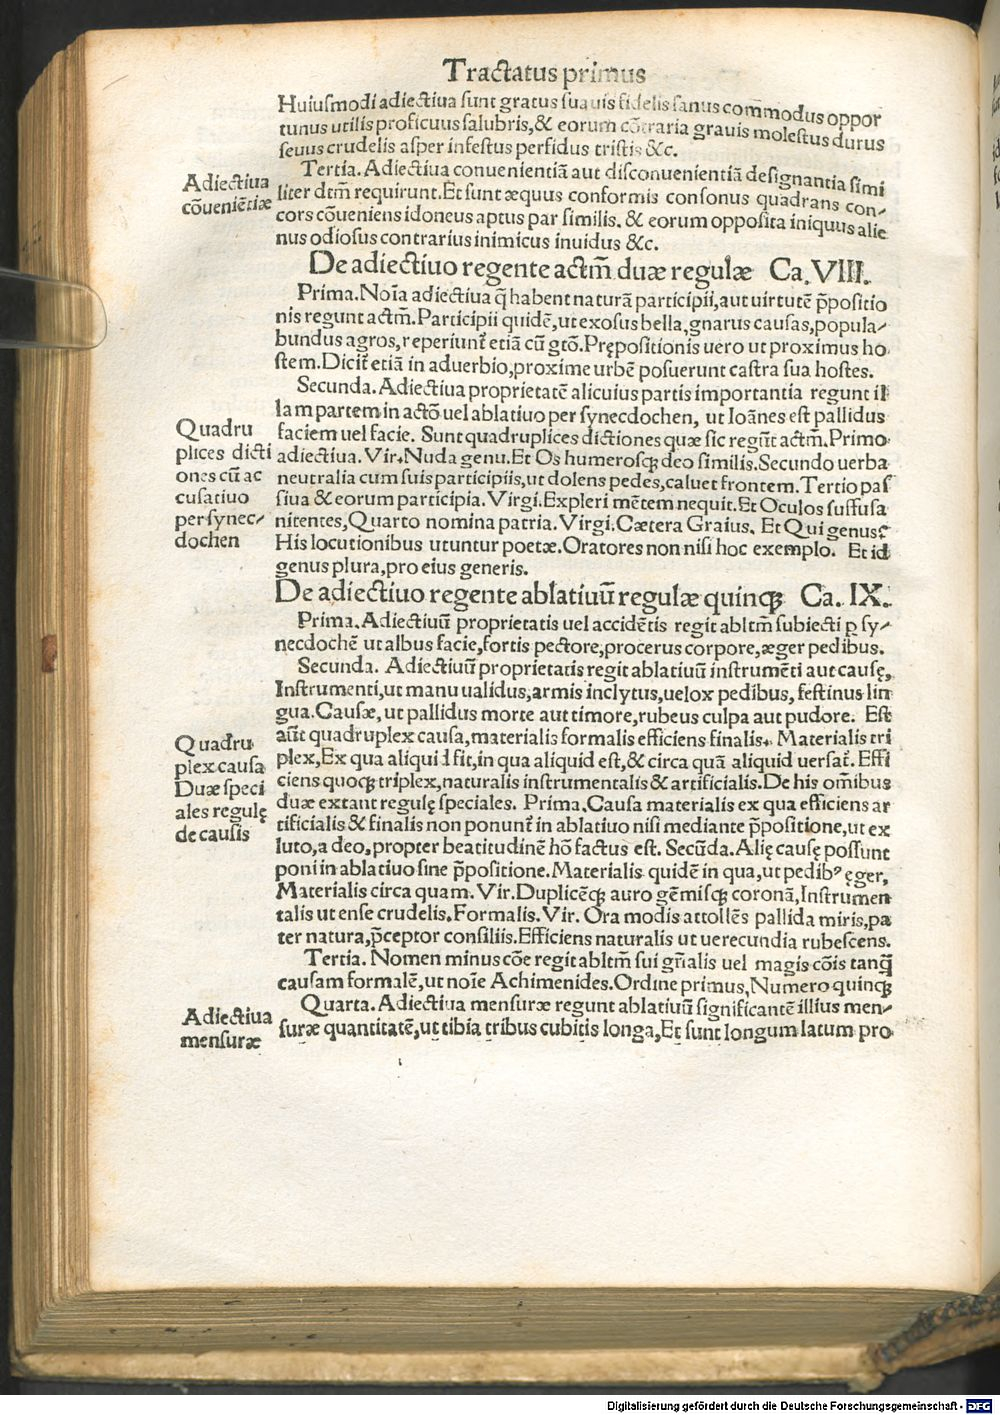 Tractatus primus
Huiusmodi adiectiua sunt gratus suauis fidelis sanus com̃modus oppor
tunus utilis proficuus salubris, & eorum cõtraria grauis molestus durus
seuus crudelis asper infestus perfidus tristis &c.
Tertia. Adiectiua conuenientiã aut disconuenientiã designantia simi
liter dtm̃ requirunt. Et sunt æquus conformis consonus quadrans con-
cors cõueniens idoneus aptus par similis. & eorum opposita iniquus alie
nus odiosus contrarius inimicus inuidus &c.
Adiectiua
cõueniẽtiæ
De adiectiuo regente actm̃ duæ regulæ Ca. VIII.
Prima. Noĩa adiectiua q̃ habent naturã participii, aut uirtutẽ p̃positio
nis regunt actm̃. Participii quidẽ, ut exosus bella, gnarus causas, popula-
bundus agros, reperiunt̃ etiã cũ gtõ. Prępositionis uero ut proximus ho
stem. Dicit̃ etiã in aduerbio, proxime urbẽ posuerunt castra sua hostes.
Secunda. Adiectiua proprietatẽ alicuius partis importantia regunt il
lam partem in actõ uel ablatiuo per synecdochen, ut Ioãnes est pallidus
faciem uel facie. Sunt quadruplices dictiones quæ sic regũt actm̃. Primo
adiectiua. Vir. Nuda genu. Et Os humerosq; deo similis. Secundo uerba
neutralia cum suis participiis, ut dolens pedes, caluet frontem. Tertio pas
siua & eorum participia. Virgi. Expleri mẽtem nequit. Et Oculos suffusa
nitentes, Quarto nomina patria. Virgi. Cætera Graius. Et Qui genus?
His locutionibus utuntur poetæ. Oratores non nisi hoc exemplo. Et id
genus plura, pro eius generis.
Quadru
plices dicti
ones cũ ac
cusatiuo
per synec-
dochen
De adiectiuo regente ablatiuũ regulæ quinq; Ca. IX.
Prima. Adiectiuũ proprietatis uel accidẽtis regit abltm̃ subiecti ꝑ sy-
necdochẽ ut albus facie, fortis pectore, procerus corpore, æger pedibus.
Secunda. Adiectiuũ proprietatis regit ablatiuũ instrumẽti aut causę,
Instrumenti, ut manu ualidus, armis inclytus, uelox pedibus, festinus lin
gua. Causæ, ut pallidus morte aut timore, rubeus culpa aut pudore. Est
aũt quadruplex causa, materialis formalis efficiens finalis. Materialis tri
plex, Ex qua aliquid fit, in qua aliquid est, & circa quã aliquid uersat̃. Effi
ciens quoq; triplex, naturalis instrumentalis & artificialis. De his om̃ibus
duæ extant regulę speciales. Prima. Causa materialis ex qua efficiens ar
tificialis & finalis non ponunt̃ in ablatiuo nisi mediante p̃positione, ut ex
luto, a deo, propter beatitudinẽ hõ factus est. Secũda. Alię causę possunt
poni in ablatiuo sine p̃positione. Materialis quidẽ in qua, ut pedibꝰ ęger,
Materialis circa quam. Vir. Duplicẽq; auro gẽmisq; coronã, Instrumen
talis ut ense crudelis. Formalis. Vir. Ora modis attollẽs pallida miris, pa
ter natura, p̃ceptor consiliis. Efficiens naturalis ut uerecundia rubescens.
Quadru
plex causa
Duæ speci
ales regulę
de causis
Tertia. Nomen minus cõe regit abltm̃ sui gñalis uel magis cõis tanq̃
causam formalẽ, ut noĩe Achimenides. Ordine primus, Numero quinq;
Quarta. Adiectiua mensuræ regunt ablatiuũ significantẽ illius men-
suræ quantitatẽ, ut tibia tribus cubitis longa, Et sunt longum latum pro
Adiectiua
mensuræ
Digitalisierung gefördert durch die Deutsche Forschungsgemeinschaft - DFG